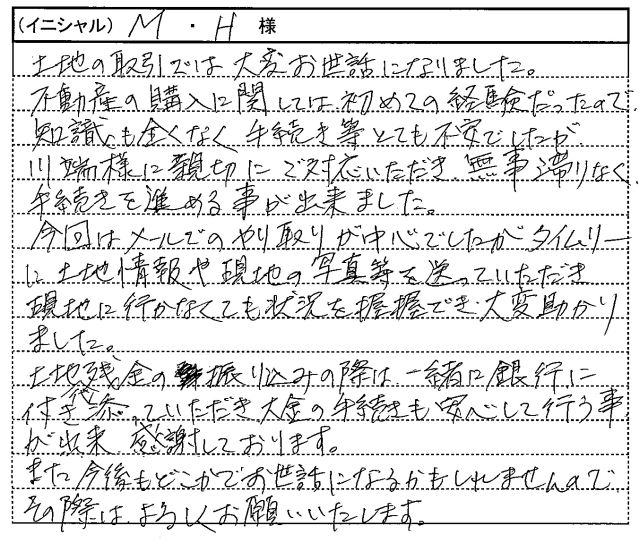 (イニシャル) M ・ H 様
土地の取引では大変お世話になりました。
不動産の購入に関しては初めての経験だったので
知識も全くなく手続き等とても不安でしたが
川端様に親切にご対応いただき無事滞りなく
手続きを進める事が出来ました。
今回はメールでのやり取りが中心でしたがタイムリー
に土地情報や現地の写真等を送っていただき
現地に行かなくても状況を握握でき大変助かり
ました。
土地残金の振り込みの際は一緒に銀行に
付き添っていただき大金の手続きも安心して行う事
が出来感謝しております。
また今後もどこかでお世話になるかもしれませんので
その際はよろしくお願いいたします。